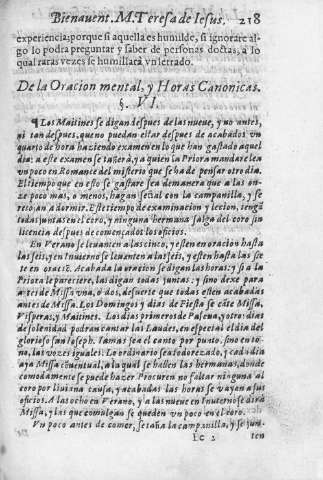 Bienauent. M. Teresa de Iesus. 218
experiencia; porque si aquella es humilde, si ignorare al-
go lo podra preguntar y saber de personas doctas, a lo
qual raras vezes se humillará vn letrado.
De la Oracion mental, y Horas Canonicas.
§. VI.
¶ Los Maitines se digan despues de las nueue, y no antes,
ni tan despues, que no puedan estar despues de acabados vn
quarto de hora haziendo examen en lo que han gastado aquel
dia: a este examen se tañerà, y a quien la Priora mandare lea
vn poco en Romance del misterio que se ha de pensar otro dia.
El tiempo que en esto se gastare sea de manera que a las on-
ze poco mas, o menos, hagan señal con la campanilla, y se
recojan a dormir. Este tiempo de examinacion y lecion, tengã
todas juntas en el coro, y ninguna hermana salga del coro sin
licencia despues de començados los oficios.
En Verano se leuanten a las cinco, y esten en oracion hasta
las seis, y en Inuierno se leuanten a las seis, y esten hasta las sie
te en oraciõ. Acabada la oracion se digan las horas: y si a la
Priora le pareciere, las digan todas juntas: y sino dexe para
antes de Missa vna, o dos, desuerte que todas esten acabadas
antes de Missa. Los Domingos y dias de Fiesta se cãte Missa,
Visperas, y Maitines. Los dias primeros de Pascua, y otros dias
de solenidad podran cantar las Laudes, en especial el dia del
glorioso san Ioseph. Iamas sea el canto por punto, sino en to-
no, las vozes iguales. Lo ordinario sea todo rezado, y cada dia
aya Missa cõuentual, a la qual se hallen las hermanas, donde
comodamente se puede hazer. Procuren no faltar ninguna al
coro por liuiana causa, y acabadas las horas se vayan a sus
oficios. A las ocho en Verano, y a las nueue en Inuierno se dirà
Missa, y las que comulgan se queden vn poco en el coro.
Vn poco antes de comer, se taña la campanilla, y se jun-
Ee 2 ten